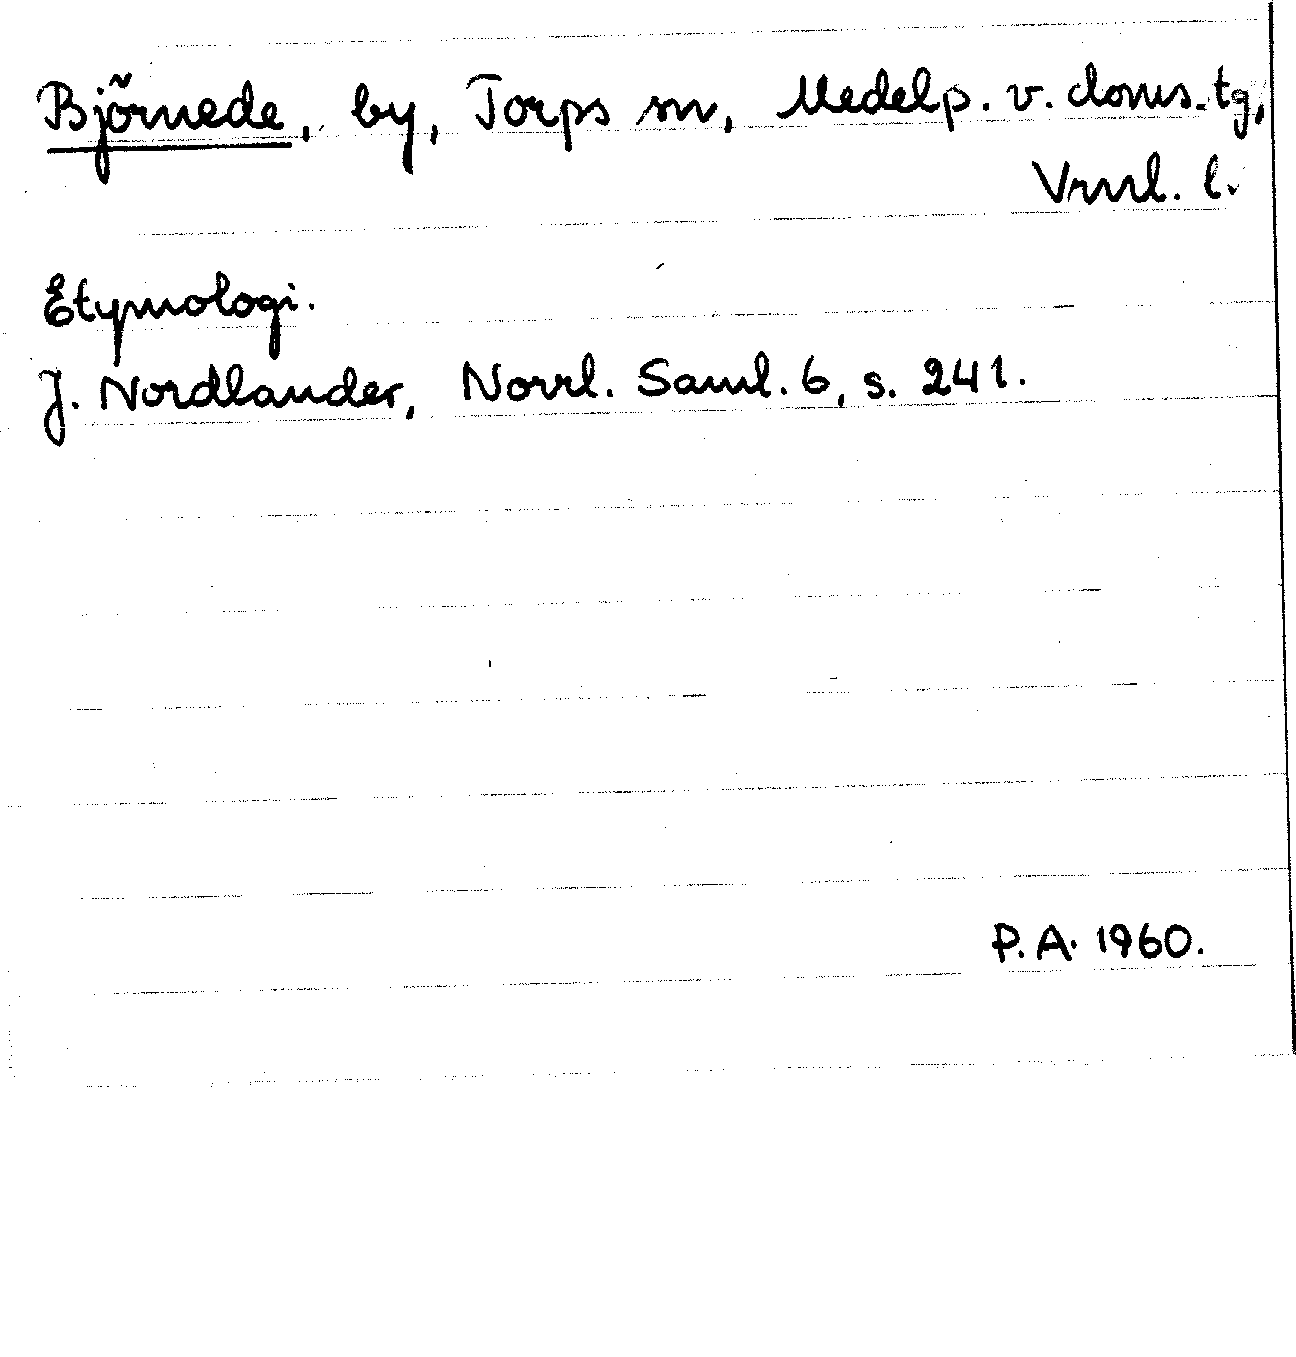 Björnede, by, Torps sn, Medelp. v. doms. tg,
Vrnl. l.
Etymologi.
J. Nordlander, Norrl. Saml. 6, s. 241.
P.A. 1960.